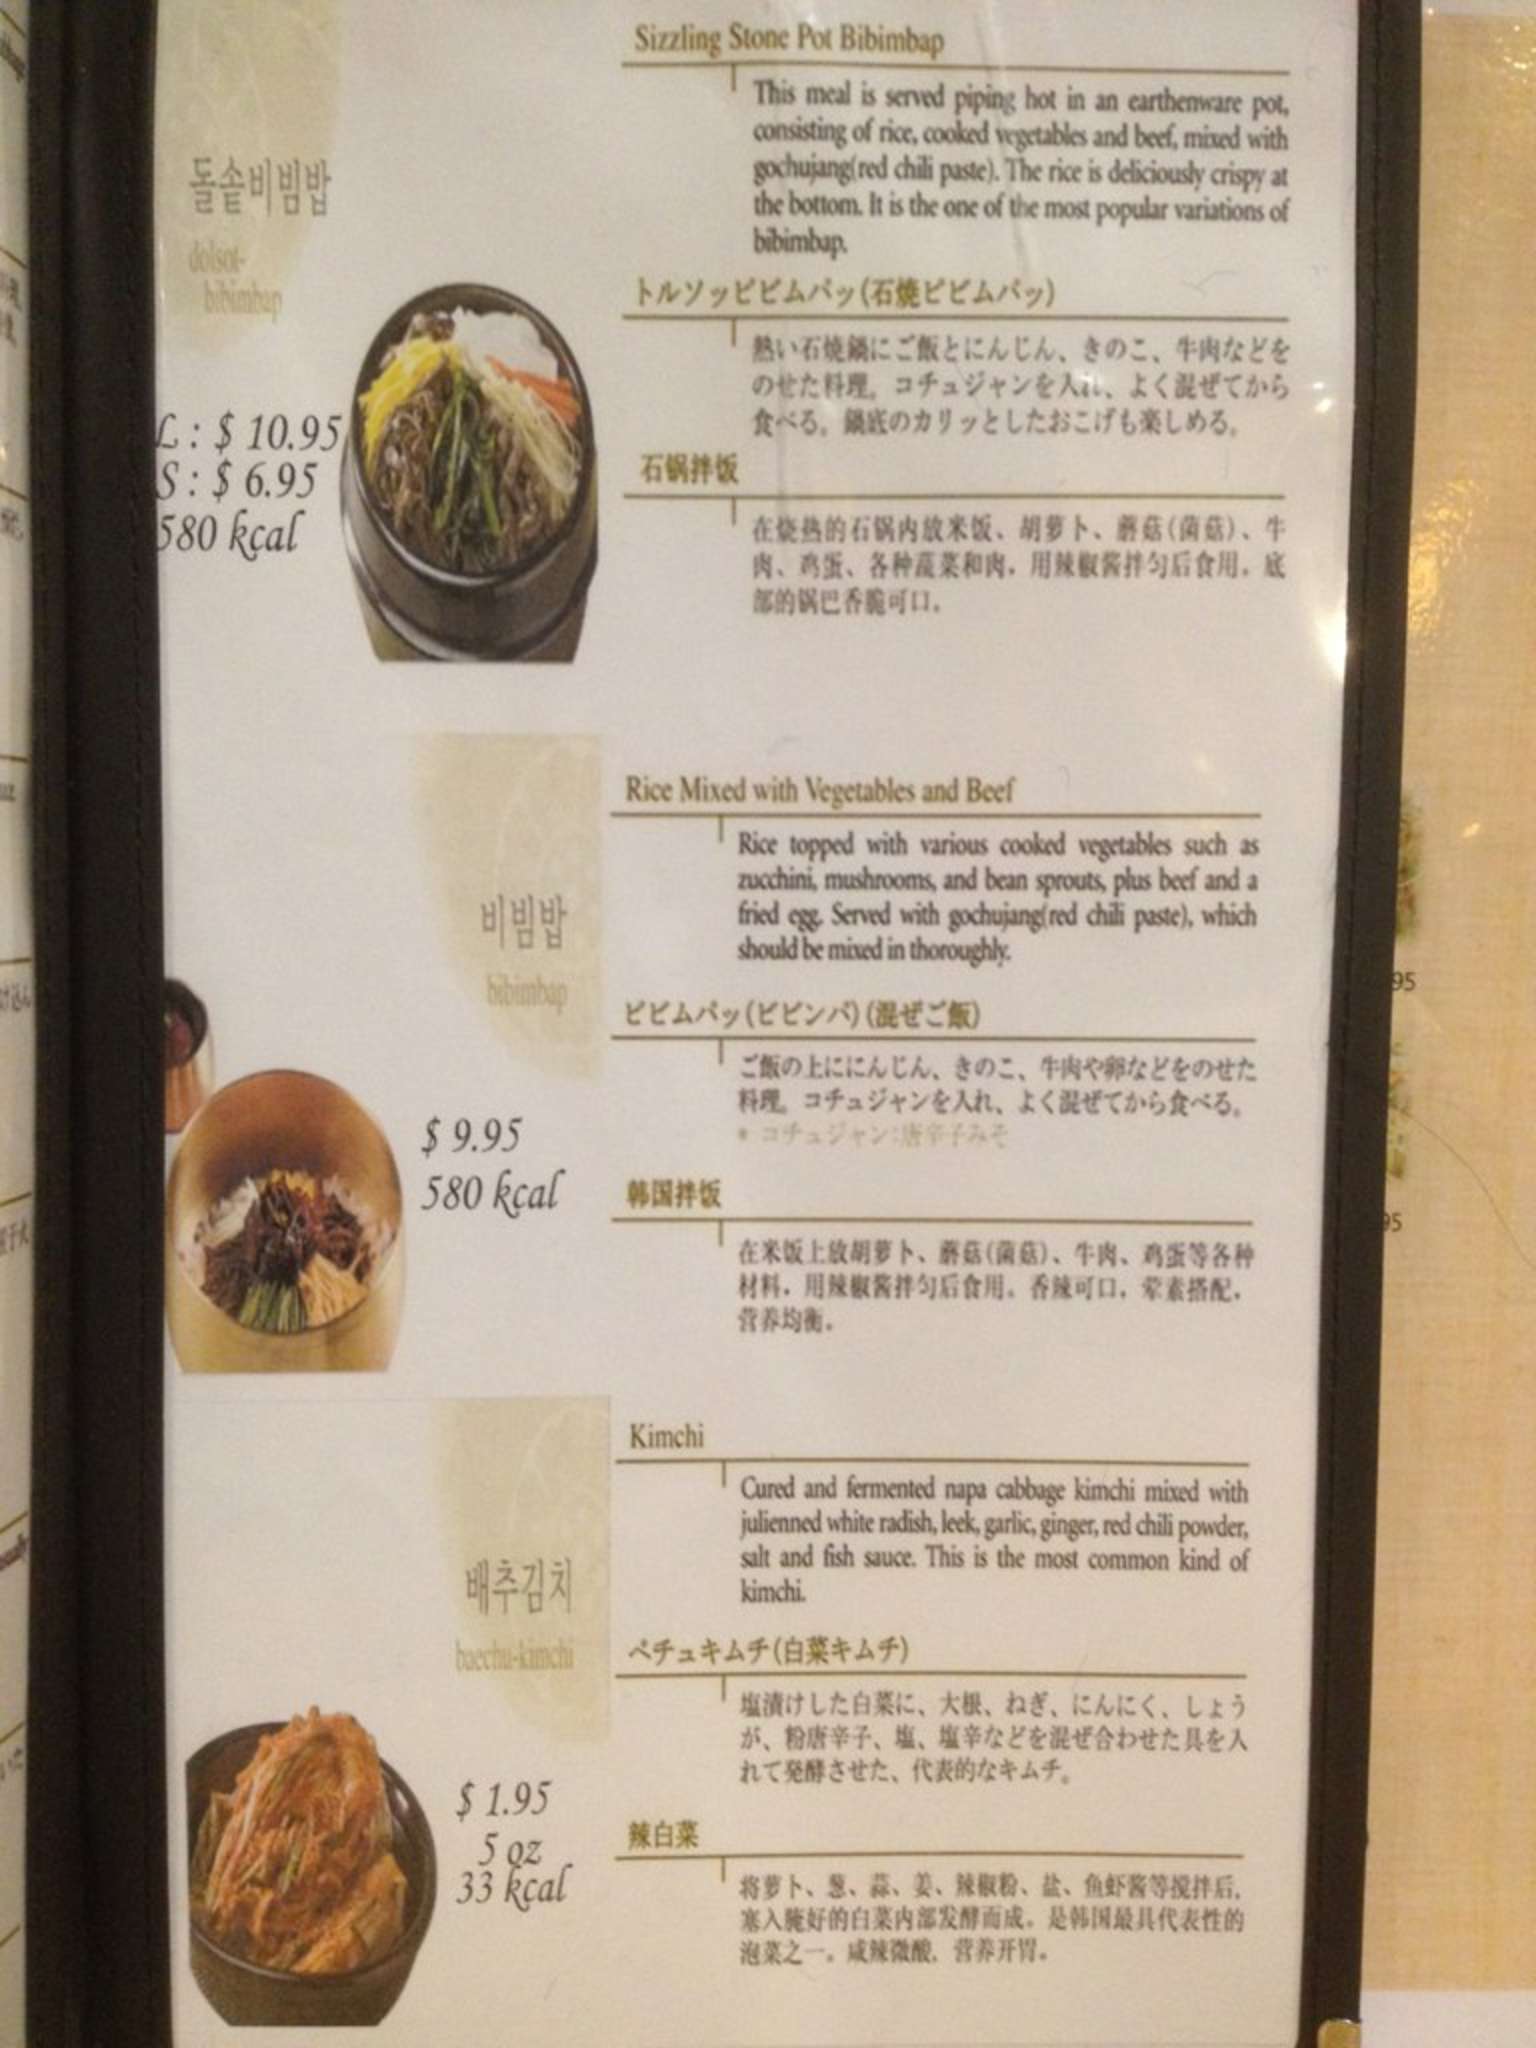 Sizzling Stone Pot Bibimbap
This meal is served piping hot in an earthenware pot,
consisting of rice, cooked vegetables and beef, mixed with
gochujang(red chili paste). The rice is deliciously crispy at
the bottom. It is the one of the most popular variations of
bibimbap.
돌솥비빔밥
dolsot-
bibimbap
L : $ 10.95
S : $ 6.95
580 kcal
トルソッビビムバッ(石焼ビビムバッ)
熱い石焼鍋にご飯とにんじん、きのこ、牛肉などを
のせた料理。コチュジャンを入れ、よく混ぜてから
食べる。鍋底のカリッとしたおこげも楽しめる。
石锅拌饭
在烧热的石锅内放米饭、胡萝卜、蘑菇(菌菇)、牛
肉、鸡蛋、各种蔬菜和肉，用辣椒酱拌匀后食用。底
部的锅巴香脆可口。
Rice Mixed with Vegetables and Beef
Rice topped with various cooked vegetables such as
zucchini, mushrooms, and bean sprouts, plus beef and a
fried egg. Served with gochujang(red chili paste), which
should be mixed in thoroughly.
비빔밥
bibimbap
$ 9.95
580 kcal
ビビムバッ(ビビンバ)(混ぜご飯)
ご飯の上ににんじん、きのこ、牛肉や卵などをのせた
料理。コチュジャンを入れ、よく混ぜてから食べる。
* コチュジャン:唐辛子みそ
韩国拌饭
在米饭上放胡萝卜、蘑菇(菌菇)、牛肉、鸡蛋等各种
材料，用辣椒酱拌匀后食用。香辣可口，荤素搭配，
营养均衡。
Kimchi
Cured and fermented napa cabbage kimchi mixed with
julienned white radish, leek, garlic, ginger, red chili powder,
salt and fish sauce. This is the most common kind of
kimchi.
배추김치
baechu-kimchi
$ 1.95
5 oz
33 kcal
ペチュキムチ(白菜キムチ)
塩漬けした白菜に、大根、ねぎ、にんにく、しょう
が、粉唐辛子、塩、塩辛などを混ぜ合わせた具を入
れて発酵させた、代表的なキムチ。
辣白菜
将萝卜、葱、蒜、姜、辣椒粉、盐、鱼虾酱等搅拌后，
塞入腌好的白菜内部发酵而成。是韩国最具代表性的
泡菜之一。咸辣微酸，营养开胃。
95
95